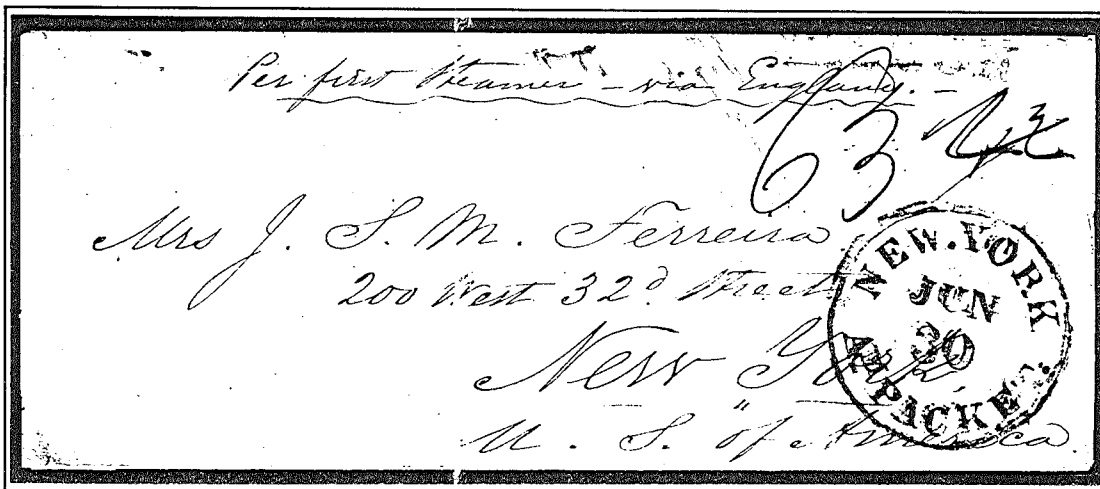 Per first Steamer – via England. –
63
Mrs J. S. M. Ferreira
200 West 32d Street
New York
U. S. of America
NEW. YORK
JUN
30
AM PACKET.